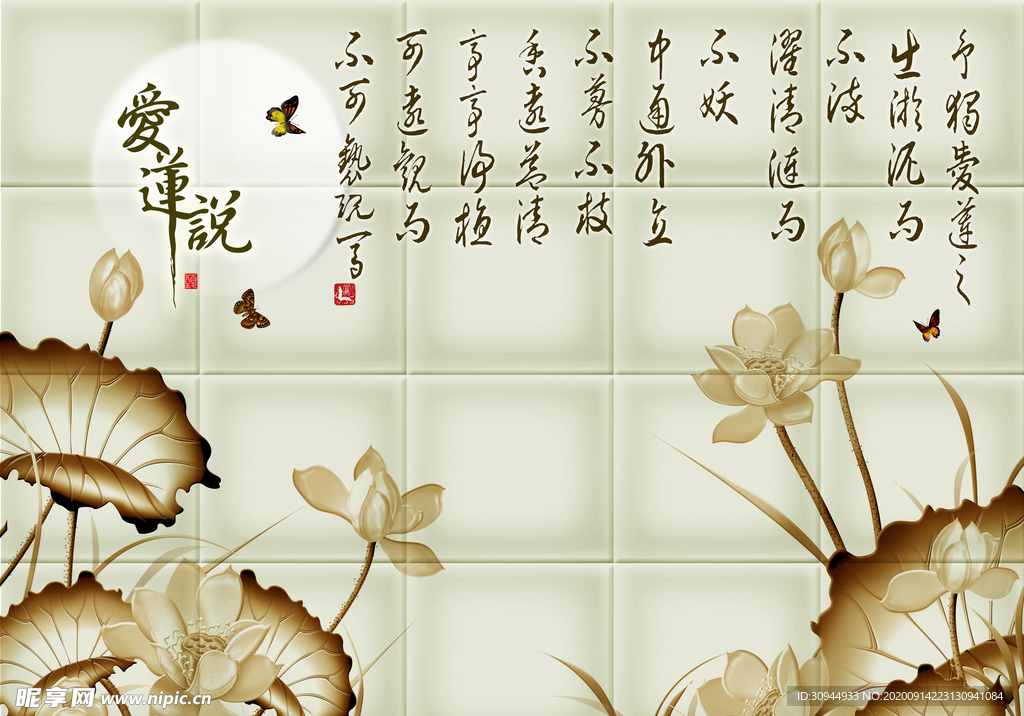 予獨愛蓮之
出淤泥而
不染
濯清漣而
不妖
中通外直
不蔓不枝
香遠益清
亭亭淨植
可遠觀而
不可褻玩焉
愛蓮說
昵享网 www.nipic.cn
ID:30944933 NO:20200914223130941084